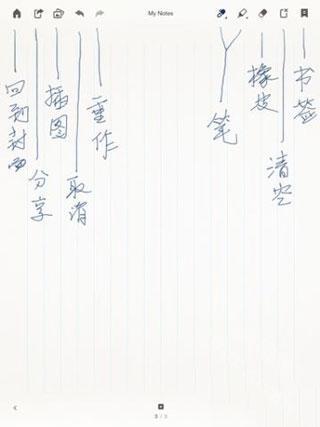 My Notes
回到封面
分享
插图
取消
重作
笔
橡皮
清空
书签
3 / 3